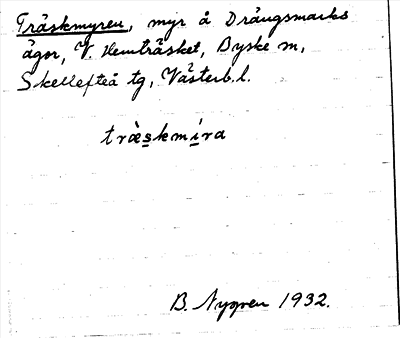 Träskmyren, myr å Drängsmarks
ägor, V. Hemträsket, Byske m,
Skellefteå tg, Västerb. l.
træskmira
B. Nygren 1932.